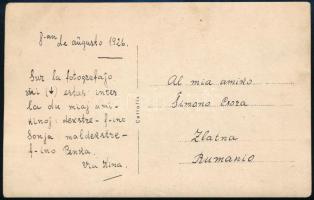 8-an de aŭgusto 1926.
Sur la fotografaĵo
mi (↓) estas inter
la du miaj ami-
kinoj: dekstre f-ino
Sonja maldekstre-
f-ino Penka.
Via Nina.
Al mia amiko
Simono
Zlatna
Rumanio